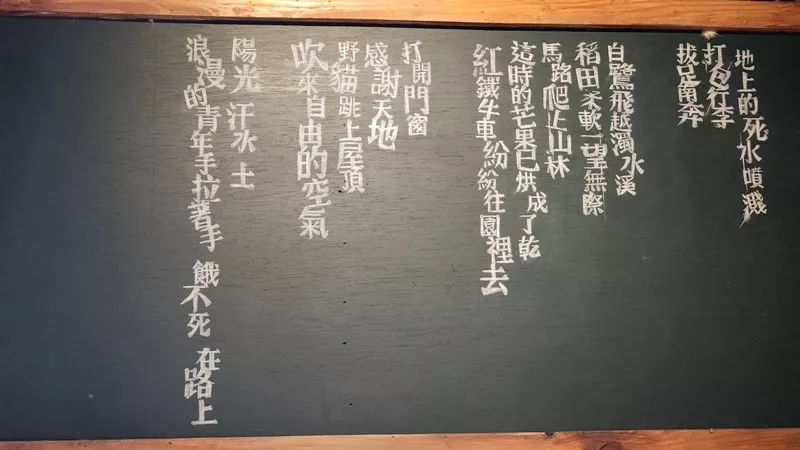 地上的死水噴濺
打包行李
拔足甪奔
白鷺飛越濁水溪
稻田柔軟一望無際
馬路爬上山林
這時的芒果已烘成了乾
紅鐵牛車紛紛往園裡去
打開門窗
感謝天地
野貓跳上屋頂
吹來自由的空氣
陽光 汗水 土
浪漫的青年手拉著手 餓不死 在路上